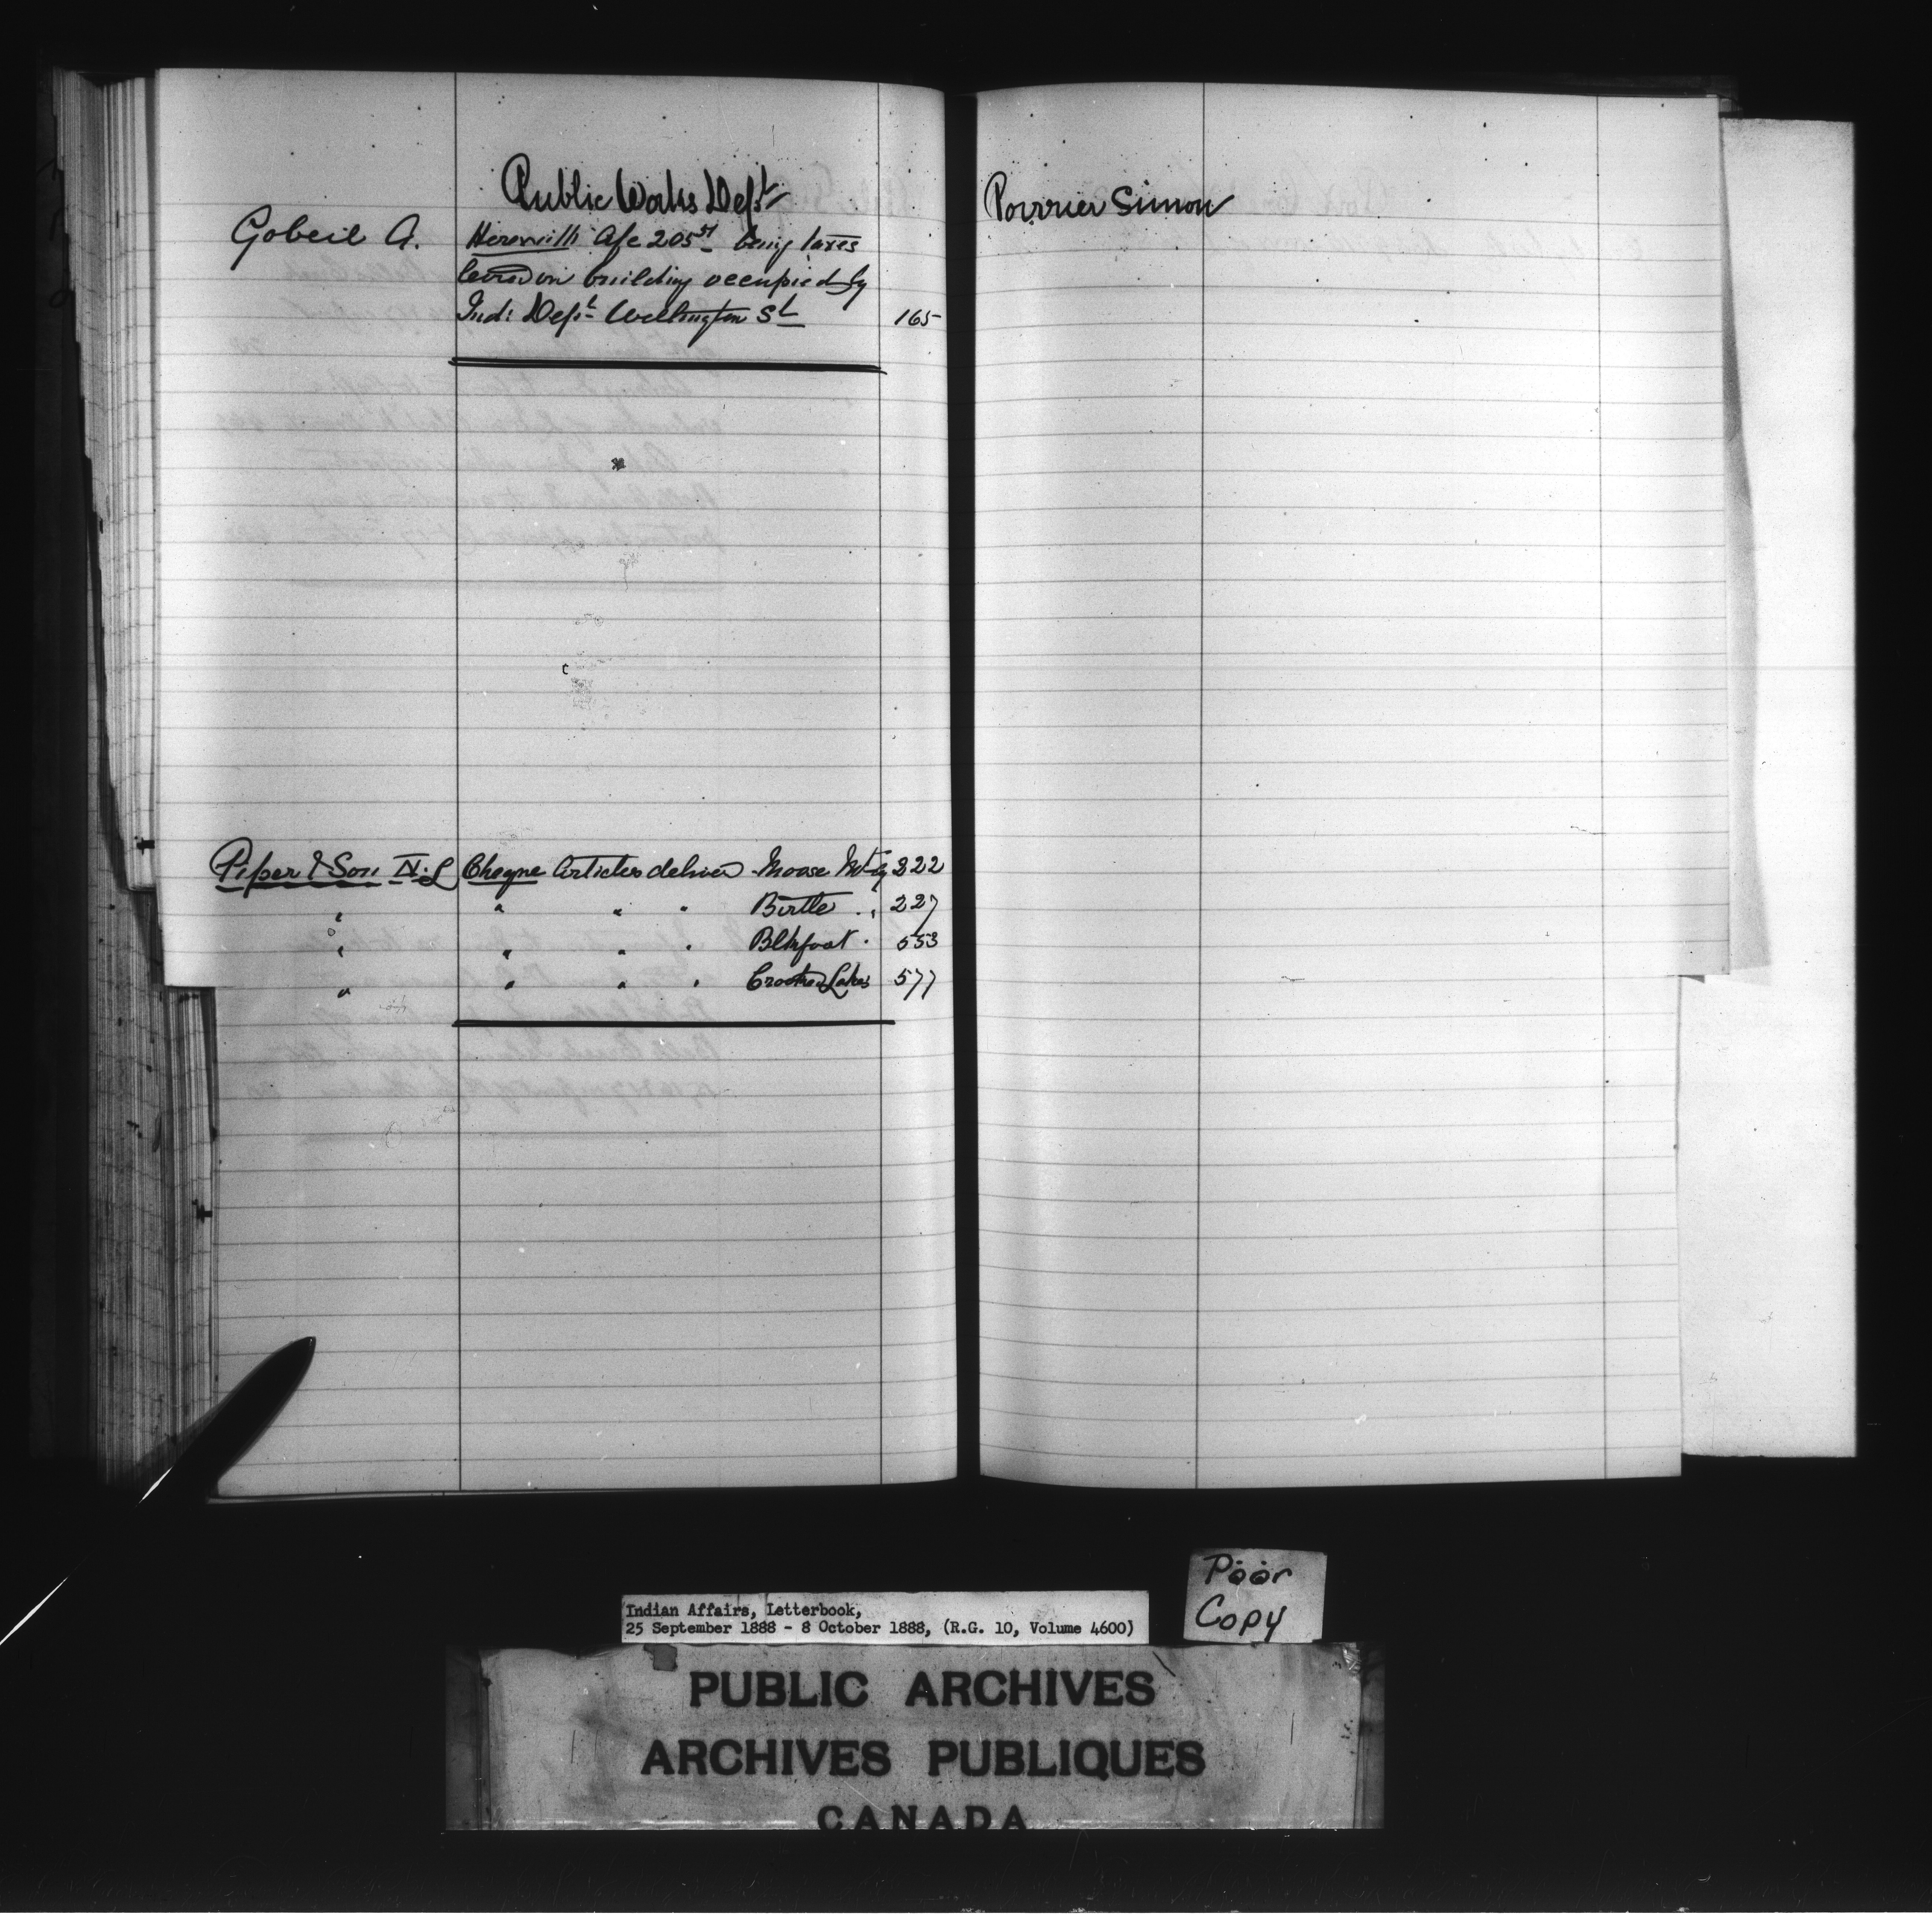 Public Works Dept
Gobeil A. Herewith a/c 205 51 being taxes
levied on building occupied by
Ind: Dept Wellington St 165
Piper & Son N. L Cheque Articles deliver Moose Mt Ag 322
" " " " Birtle " 227
" " " " Blkfoot " 553
" " " " Crooked Lakes 577
Poirrier Simon
Poor
Copy
Indian Affairs, Letterbook,
25 September 1888 - 8 October 1888, (R.G. 10, Volume 4600)
PUBLIC ARCHIVES
ARCHIVES PUBLIQUES
CANADA